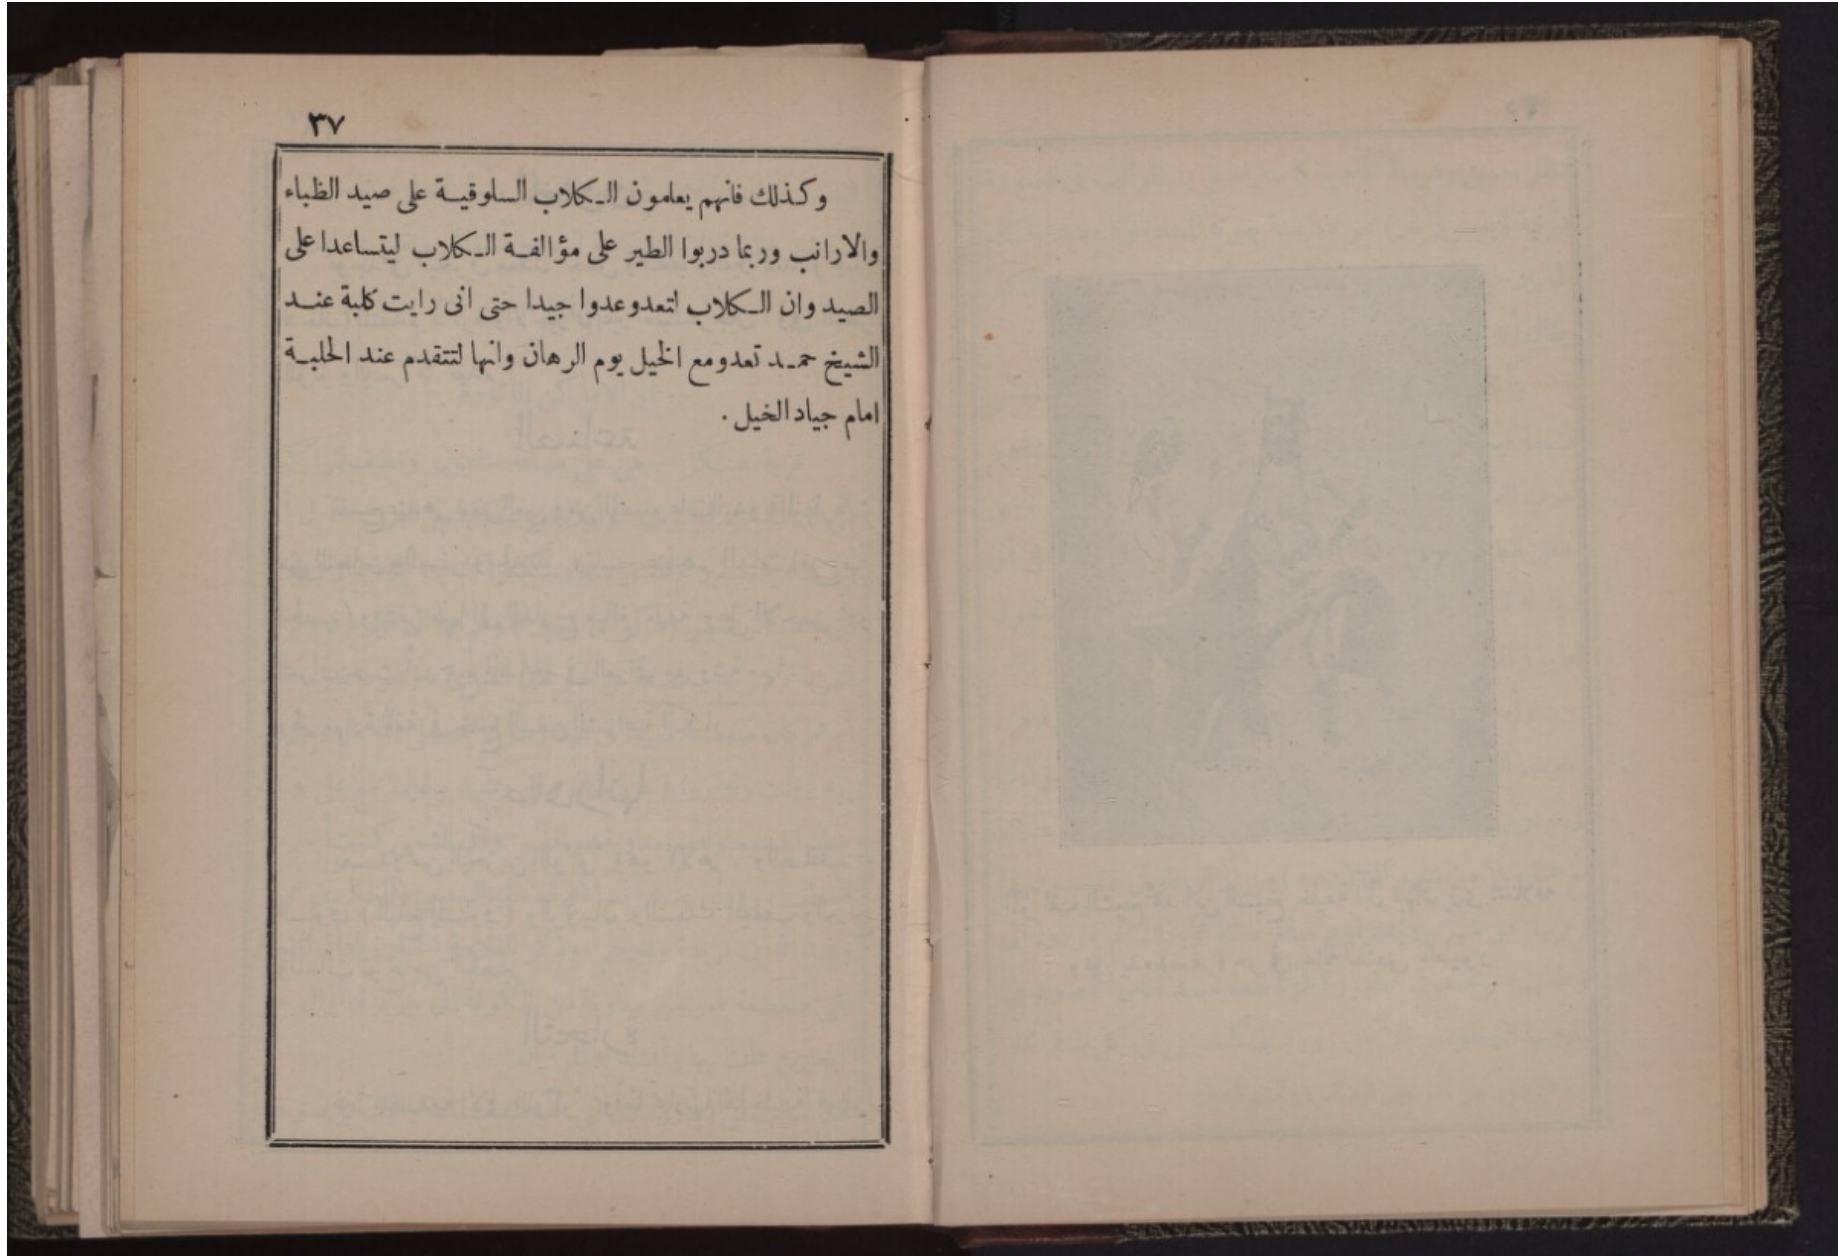 ٣٧
وكذلك فانهم يعلمون الكلاب السلوقية على صيد الظباء
والارانب وربما دربوا الطير على مؤالفة الكلاب ليتساعدا على
الصيد وان الكلاب لتعدو عدوا جيدا حتى انى رايت كلبة عند
الشيخ حمد تعدو مع الخيل يوم الرهان وانها لتتقدم عند الحلبة
امام جياد الخيل .